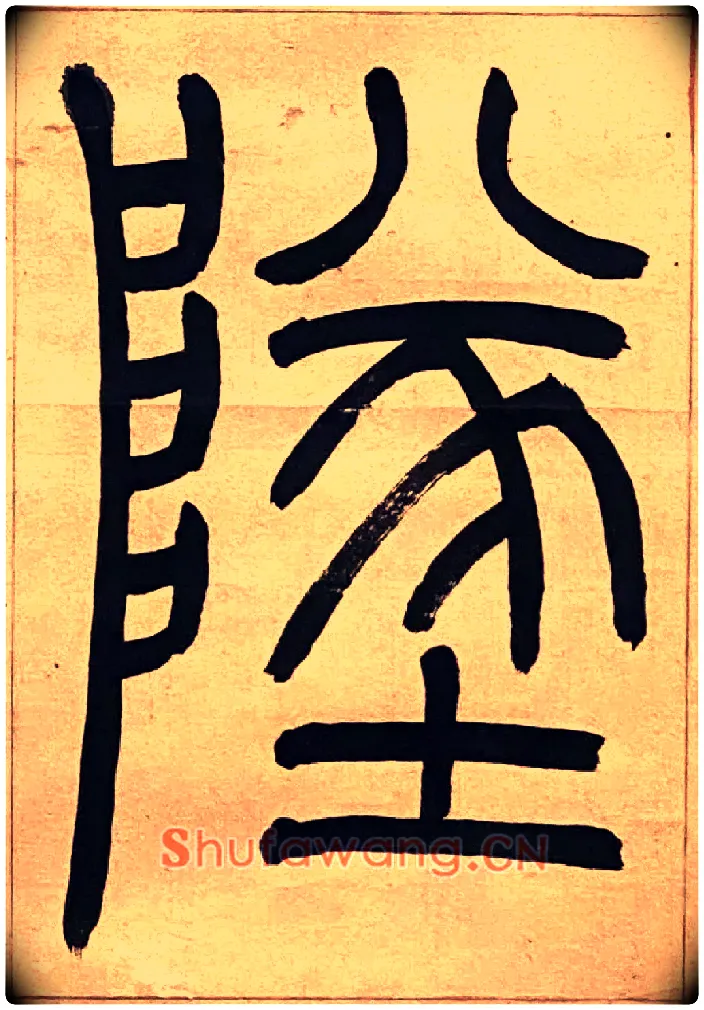 墜
Shufawang.CN